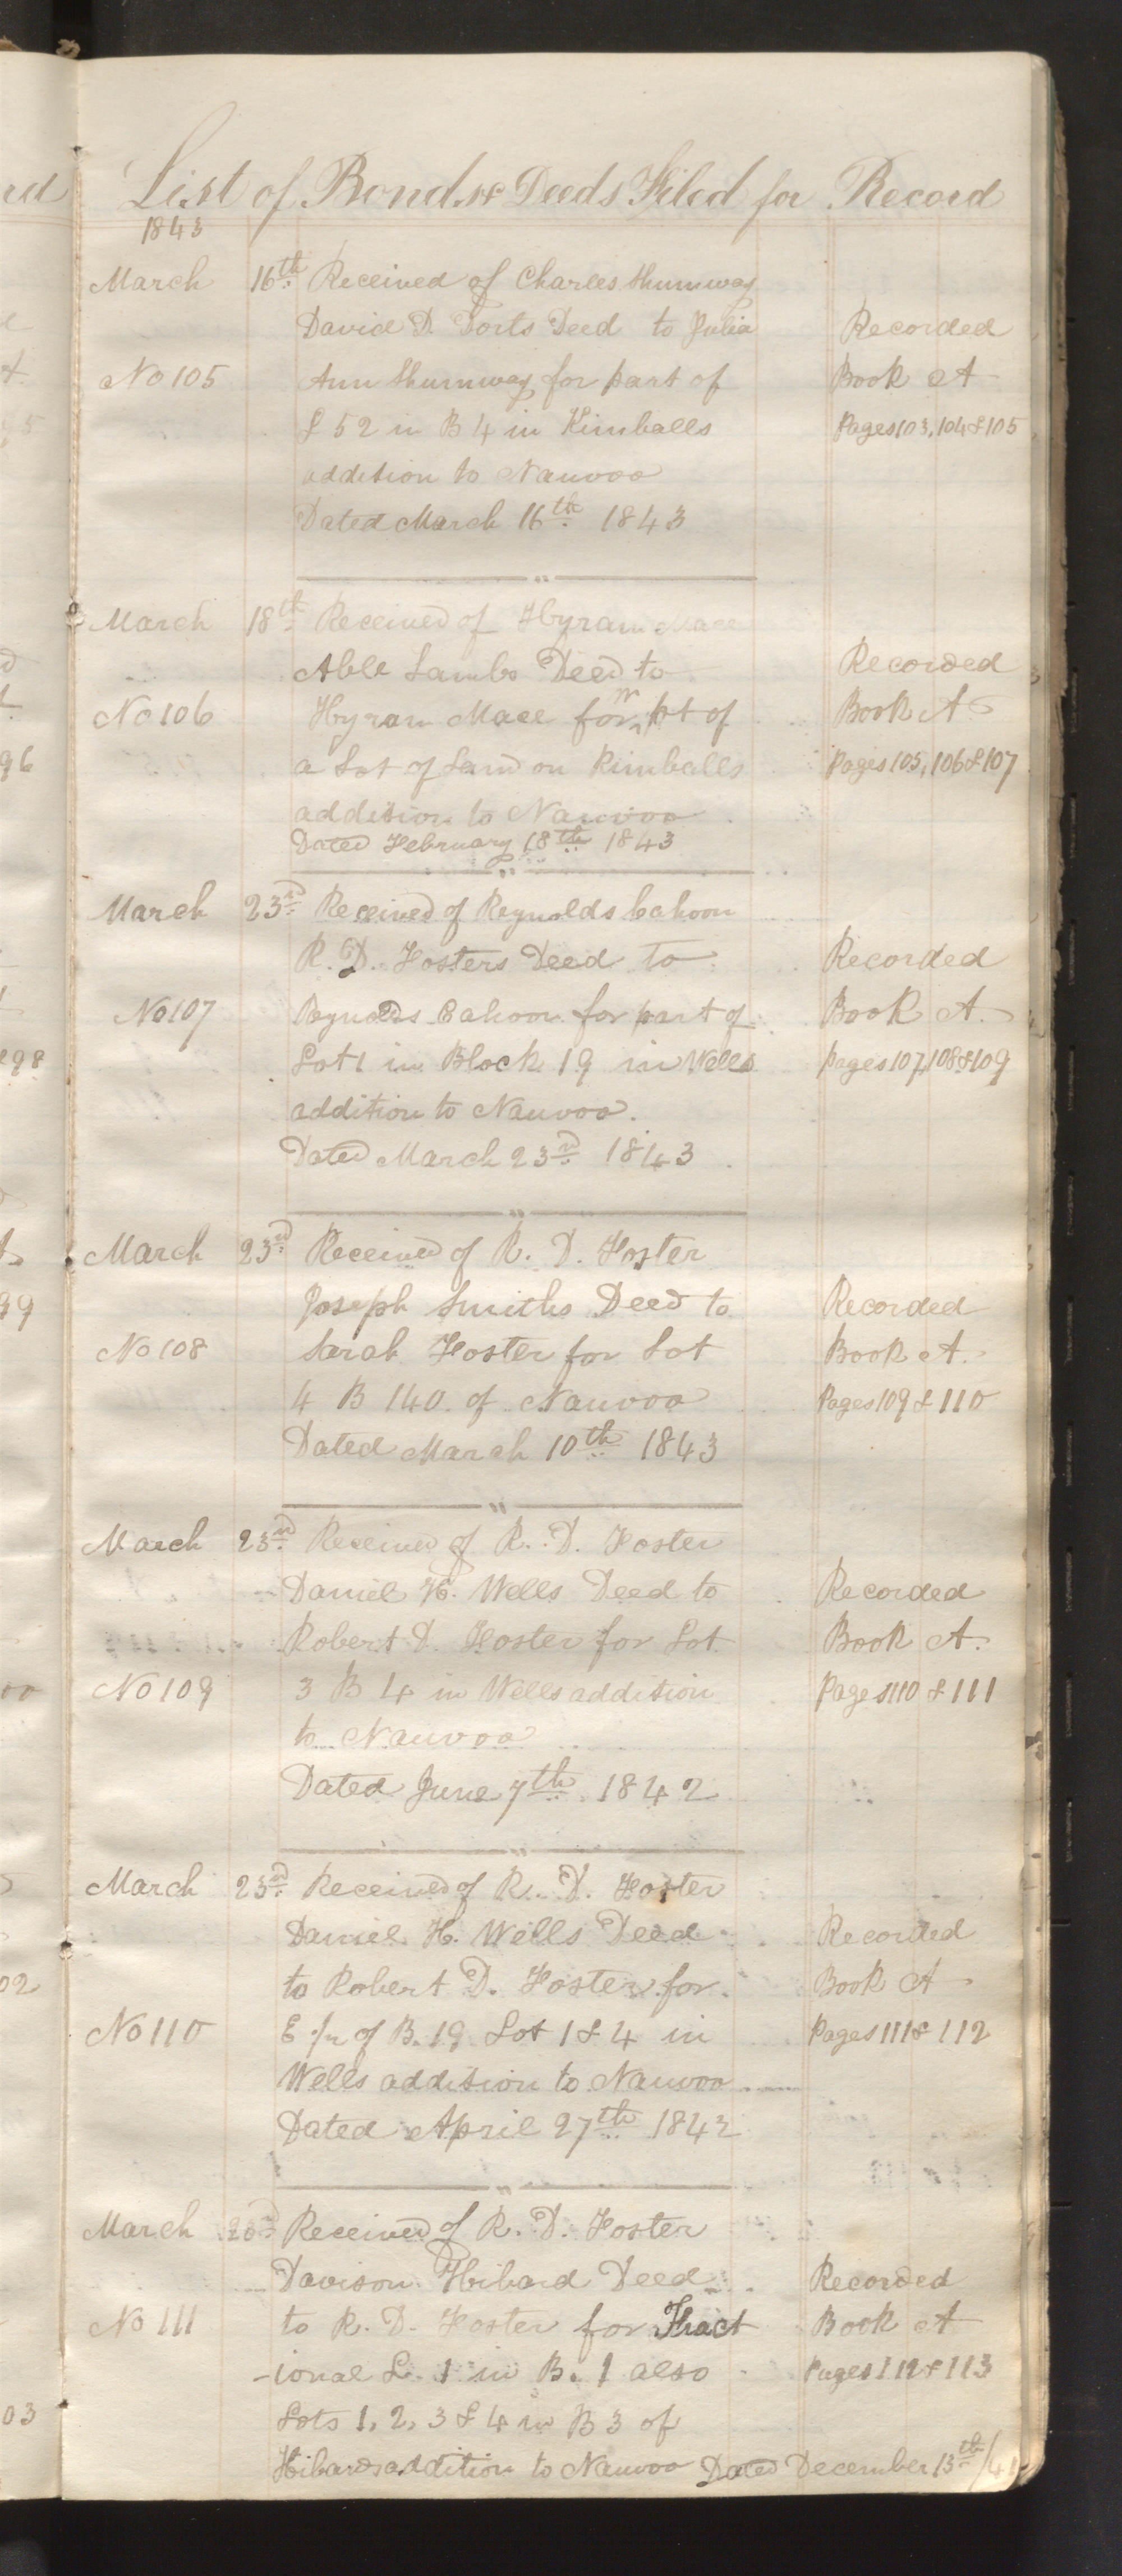 List of Bonds & Deeds Filed for Record
1843
March 16th Received of Charles Shumway
David D. Yorts Deed to Julia Recorded
No 105 Ann Shumway for part of Book A
L 52 in B 4 in Kimballs Pages 103, 104 & 105
addition to Nauvoo
Dated March 16th 1843
March 18th Received of Hyram Mace
Able Lambs Deed to Recorded
No 106 Hyram Mace for W pt of Book A
a Lot of Land on Kimballs Pages 105, 106 & 107
addition to Nauvoo
Dated February 18th 1843
March 23rd Received of Reynolds Cahoon
R. D. Fosters Deed to Recorded
No 107 Reynolds Cahoon for part of Book A.
Lot 1 in Block 19 in Wells Pages 107, 108 & 109
addition to Nauvoo.
Dated March 23rd 1843
March 23rd Received of R. D. Foster
Joseph Smiths Deed to Recorded
No 108 Sarah Foster for Lot Book A.
4 B 140 of Nauvoo Pages 109 & 110
Dated March 10th 1843
March 23rd Received of R. D. Foster
Daniel H. Wells Deed to Recorded
Robert D. Foster for Lot Book A.
No 109 3 B 4 in Wells addition Pages 110 & 111
to Nauvoo
Dated June 7th 1842
March 23rd Received of R. D. Foster
Daniel H. Wells Deed Recorded
to Robert D. Foster for Book A
No 110 E of B. 19 Lot 1 & 4 in Pages 111 & 112
Wells addition to Nauvoo
Dated April 27th 1842
March 23rd Received of R. D. Foster
Davison Hibard Deed Recorded
No 111 to R. D. Foster for Fract Book A
-ional L. 1 in B. 1 also Pages 112 & 113
Lots 1, 2, 3 & 4 in B 3 of
Hibards addition to Nauvoo Dated December 13th /41